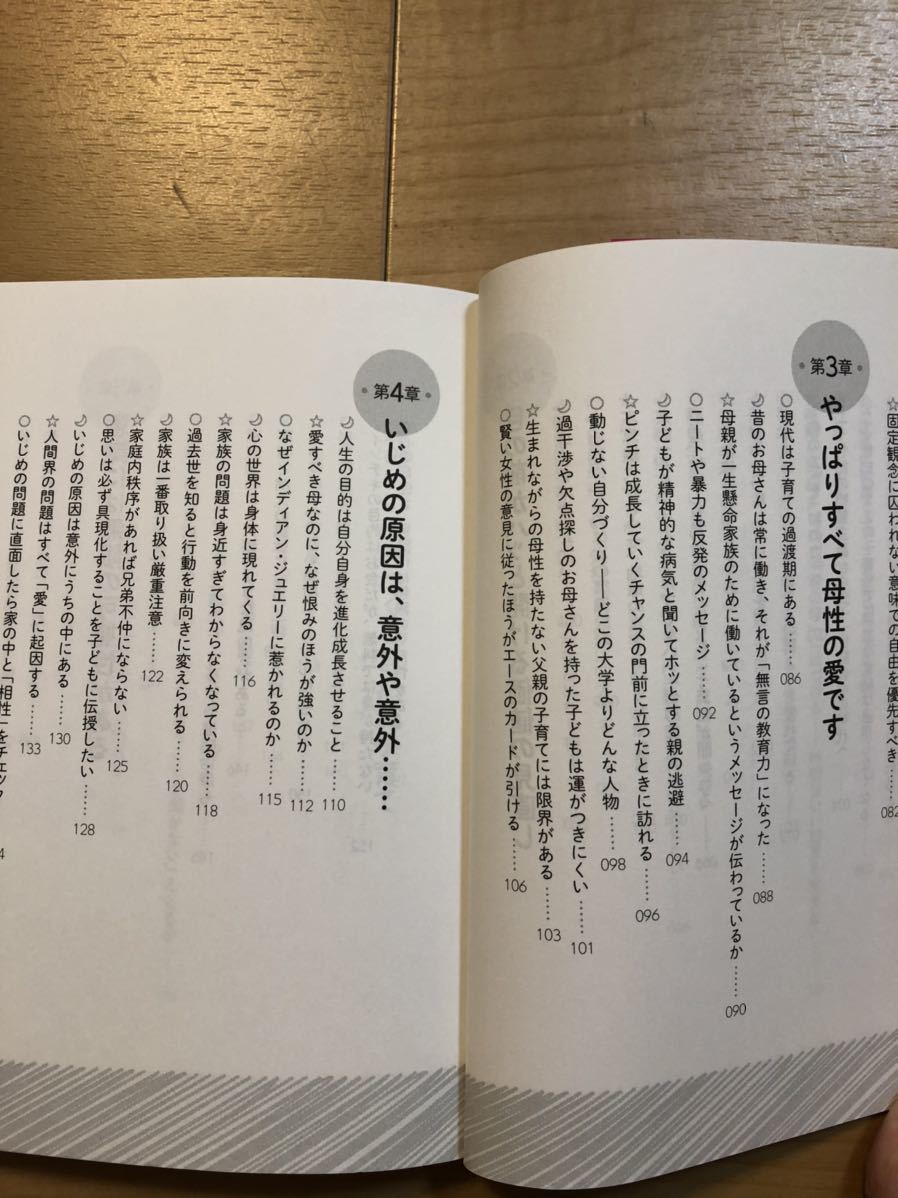 ☆固定観念に囚われない意味での自由を優先すべき……082
第3章
やっぱりすべて母性の愛です
○現代は子育ての過渡期にある……086
☽昔のお母さんは常に働き、それが「無言の教育力」になった……088
☆母親が一生懸命家族のために働いているというメッセージが伝わっているか……090
○ニートや暴力も反発のメッセージ……092
☽子どもが精神的な病気と聞いてホッとする親の逃避……094
☆ピンチは成長していくチャンスの門前に立ったときに訪れる……096
○動じない自分づくり――どこの大学よりどんな人物……098
☽過干渉や欠点探しのお母さんを持った子どもは運がつきにくい……101
☆生まれながらの母性を持たない父親の子育てには限界がある……103
○賢い女性の意見に従ったほうがエースのカードが引ける……106
第4章
いじめの原因は、意外や意外……
☽人生の目的は自分自身を進化成長させること……110
☆愛すべき母なのに、なぜ恨みのほうが強いのか……112
○なぜインディアン・ジュエリーに惹かれるのか……115
☽心の世界は身体に現れてくる……116
☆家族の問題は身近すぎてわからなくなっている……118
○過去世を知ると行動を前向きに変えられる……120
☽家族は一番取り扱い厳重注意……122
☆家庭内秩序があれば兄弟不仲にならない……125
○思いは必ず具現化することを子どもに伝授したい……128
☽いじめの原因は意外にうちの中にある……130
☆人間界の問題はすべて「愛」に起因する……133
○いじめの問題に直面したら家の中と「相性」をチェック